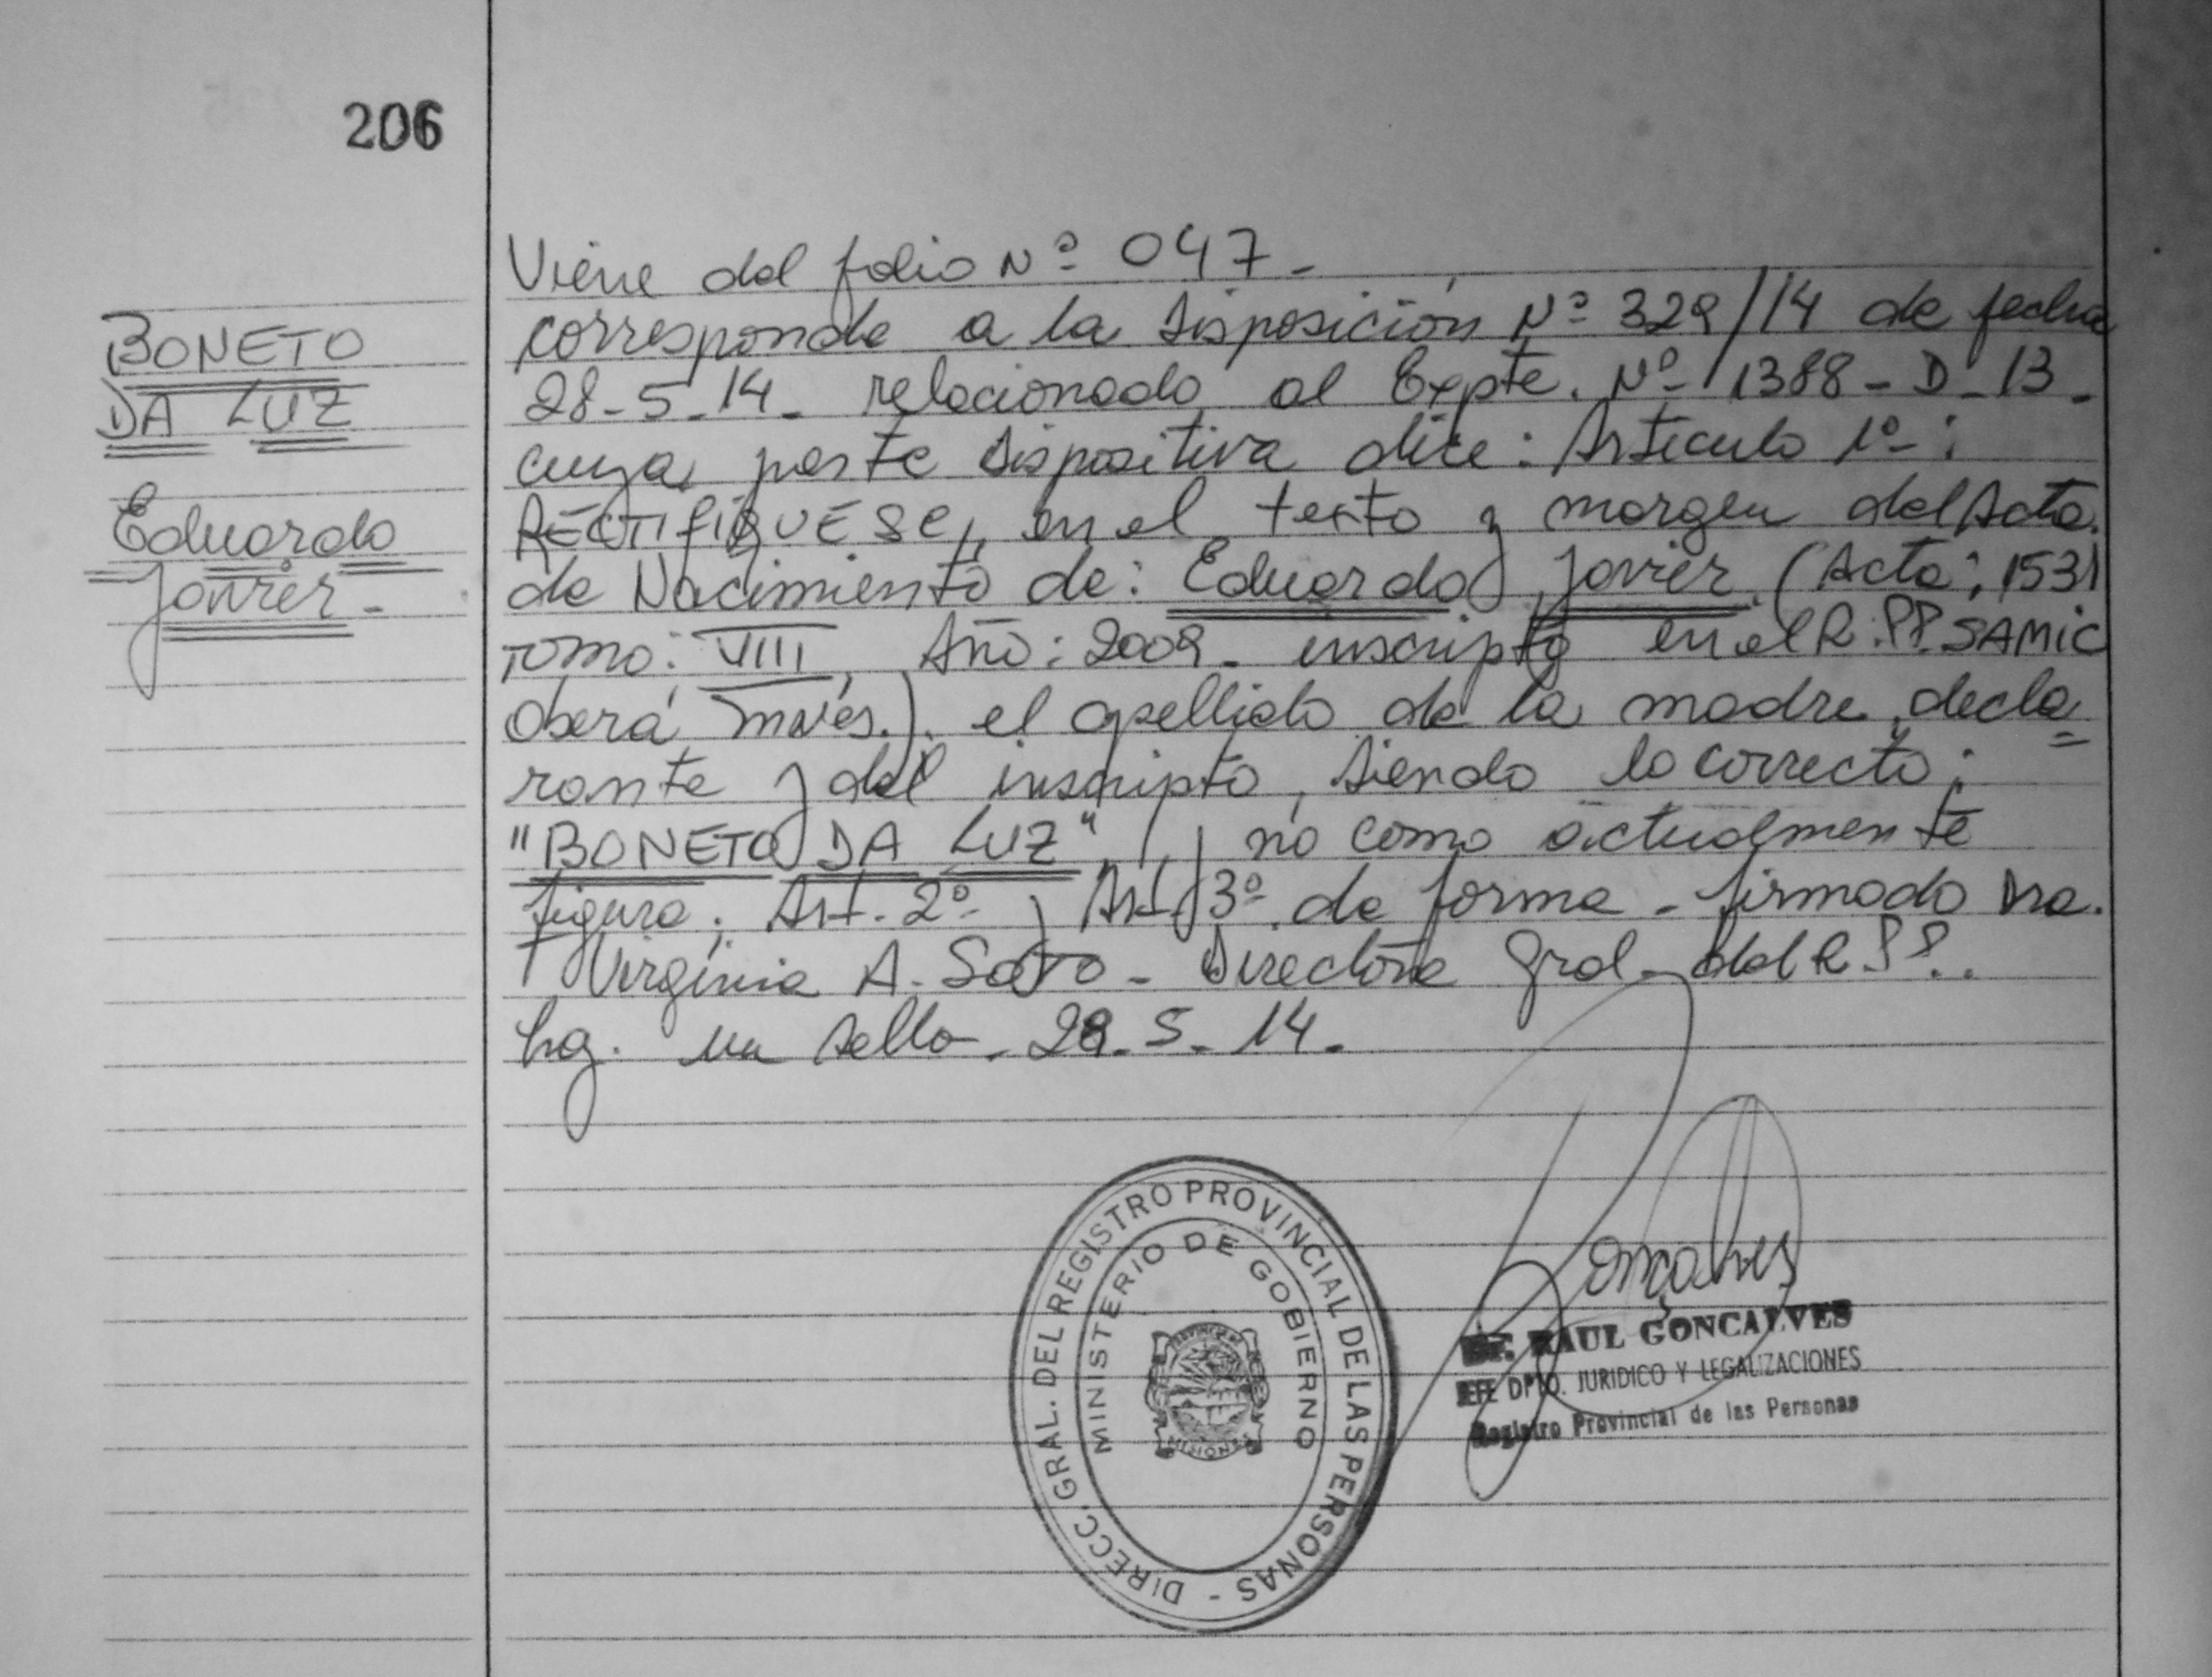 206
BONETO
DA LUZ
Eduardo
Javier.-
Viene del folio Nº 047.-
corresponde a la disposición Nº 329/14 de fecha
28-5-14- relacionado al Expte. Nº 1388-D-13-
cuya parte dispositiva dice: Artículo 1º-:
RECTIFIQUESE, en el texto y margen del Acta
de Nacimiento de: Eduardo Javier (Acta: 1531
Tomo: VIII, Año: 2009- inscripto en el R.P.P. SAMIC
Oberá Mnes.). el apellido de la madre, decla=
rante y del inscripto, siendo lo correcto:
"BONETO DA LUZ", y no como actualmente
figura; Art. 2º y Art. 3º de forma - firmado Dra.
Virginia A. Soto - Directora Gral. del R.P.P..
hg. un sello - 28-5-14.
DIRECC. GRAL. DEL REGISTRO PROVINCIAL DE LAS PERSONAS -
MINISTERIO DE GOBIERNO
MISIONES
Gonçalves
Dr. RAUL GONÇALVES
JEFE DPTO. JURIDICO Y LEGALIZACIONES
Registro Provincial de las Personas